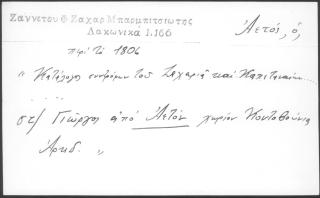 Ζαννετου Θ Ζαχαρ Μπαρμπιτσιωτης
Λακωνικά Ι.166
Ἀετός, ὁ,
περί τό 1806
"Κατάλογος συντρόφων τοῦ Ζαχαριᾶ καί Καπεταναίων....
στ/ Γιῶργος ἀπό Ἀετόν χωρίον Κοντοβούνια
Ἀρκδ. "